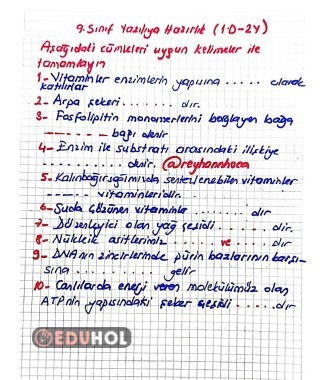 9. Sınıf Yazılıya Hazırlık (1.D-2Y)
Aşağıdaki cümleleri uygun kelimeler ile
tamamlayın
1- Vitaminler enzimlerin yapısına ..... olarak
katılırlar
2- Arpa şekeri ....... dır.
3- Fosfolipitin monomerlerini bağlayan bağa
------- bağı denir
4- Enzim ile substratı arasındaki ilişkiye
........ denir. @reyhannhoca
5- Kalınbağırsağımızda sentezlenebilen vitaminler
----- vitaminleridir.
6- Suda çözünen vitaminler ..... dır
7- Düzenleyici olan yağ çeşidi ..... dır.
8- Nükleik asitlerimiz ..... ve ... dır
9- DNA'nın zincirlerinde pürin bazlarının karşı-
sına .......... gelir
10- Canlılarda enerji veren molekülümüz olan
ATP'nin yapısındaki şeker çeşidi ..... dır
EDUHOL